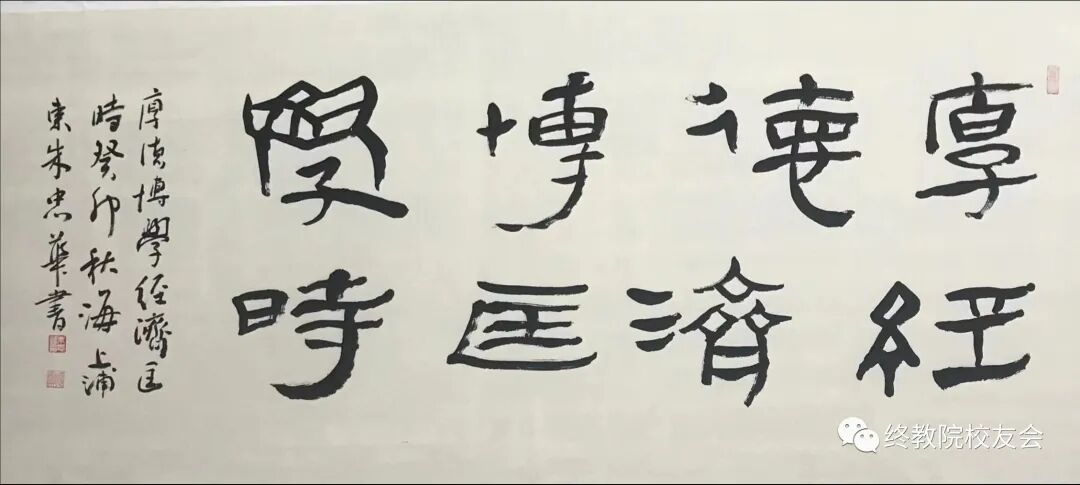 厚德博学
經濟匡時
厚德博學經濟匡
時癸卯秋海上浦
東朱忠華書
终教院校友会